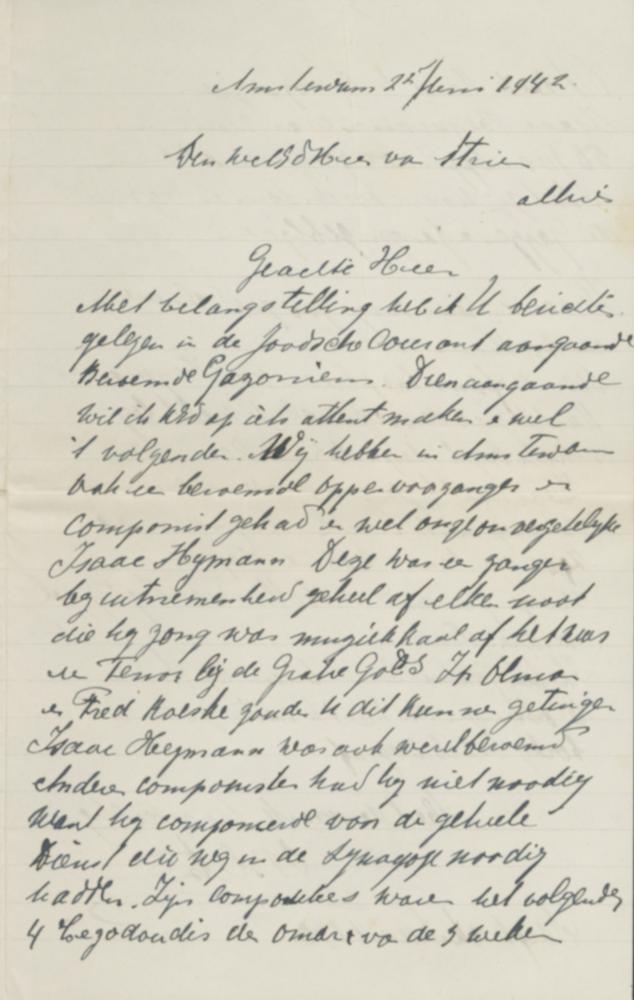 Amsterdam 22 Juni 1942.
Den WelEd Heer van Strien
alhier
Geachte Heer
Met belangstelling heb ik U berichten
gelezen in de Joodsche Courant aangaande
Beroemde Gazoniem. Dienaangaande
wil ik UEd op iets attent maken en wel
't volgende. Wij hebben in Amsterdam
ook een beroemd oppervoorzanger en
componist gehad en wel onze onvergetelijke
Isaac Heymann Deze was een zanger
bij uitnemendheid geheel af elken noot
die hij zong was muziekkaal of het was
een Tenor bij de Groote
en Fred Roeske zouden U dit kunnen getuigen
Isaac Heymann was ook wereldberoemd
Andere componisten had hij niet noodig
want hij componeerde voor de geheele
Dienst die wij in de Synagoge noodig
hadden. Zijn composities waren het volgende
4 de Omar van de 3 weken